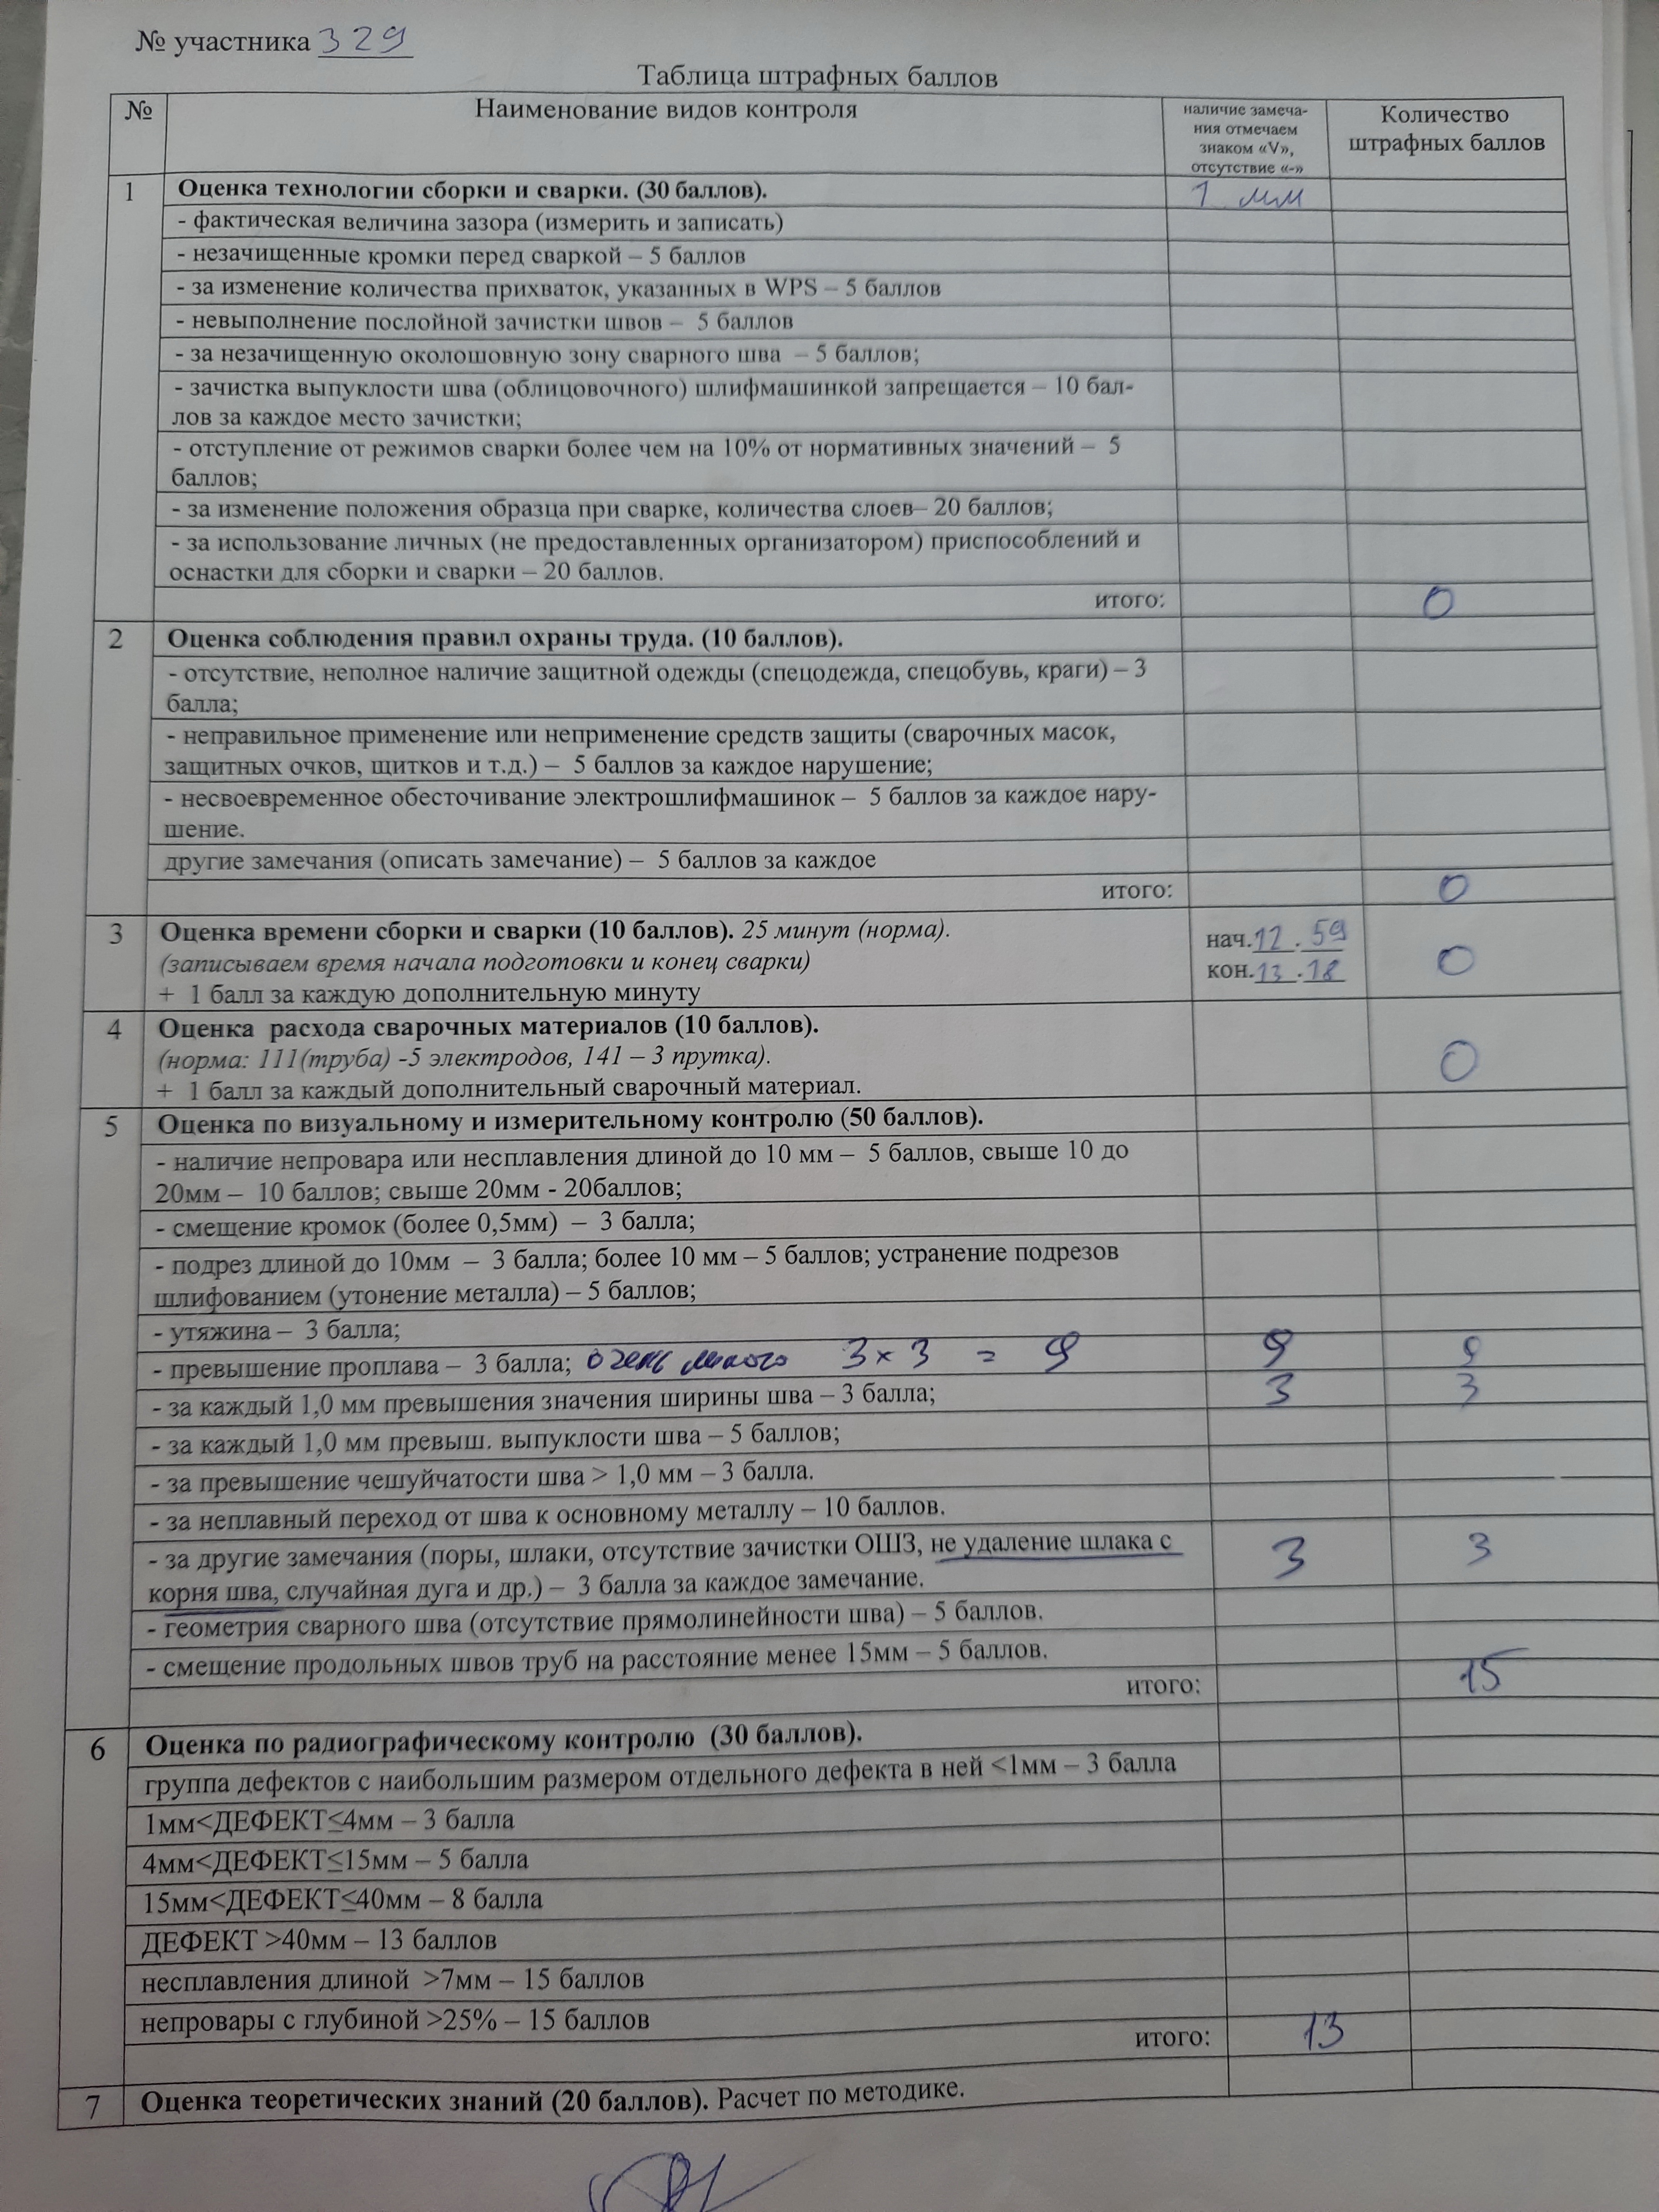 № участника 329
Таблица штрафных баллов
№
Наименование видов контроля
наличие замеча-
ния отмечаем
знаком «V»,
отсутствие «-»
Количество
штрафных баллов
1 Оценка технологии сборки и сварки. (30 баллов). 1 мм
- фактическая величина зазора (измерить и записать)
- незачищенные кромки перед сваркой – 5 баллов
- за изменение количества прихваток, указанных в WPS – 5 баллов
- невыполнение послойной зачистки швов – 5 баллов
- за незачищенную околошовную зону сварного шва – 5 баллов;
- зачистка выпуклости шва (облицовочного) шлифмашинкой запрещается – 10 бал-
лов за каждое место зачистки;
- отступление от режимов сварки более чем на 10% от нормативных значений – 5
баллов;
- за изменение положения образца при сварке, количества слоев– 20 баллов;
- за использование личных (не предоставленных организатором) приспособлений и
оснастки для сборки и сварки – 20 баллов.
итого: 0
2 Оценка соблюдения правил охраны труда. (10 баллов).
- отсутствие, неполное наличие защитной одежды (спецодежда, спецобувь, краги) – 3
балла;
- неправильное применение или неприменение средств защиты (сварочных масок,
защитных очков, щитков и т.д.) – 5 баллов за каждое нарушение;
- несвоевременное обесточивание электрошлифмашинок – 5 баллов за каждое нару-
шение.
другие замечания (описать замечание) – 5 баллов за каждое
итого: 0
3 Оценка времени сборки и сварки (10 баллов). 25 минут (норма). нач. 12 . 59
(записываем время начала подготовки и конец сварки) кон. 13 . 18 0
+ 1 балл за каждую дополнительную минуту
4 Оценка расхода сварочных материалов (10 баллов).
(норма: 111(труба) -5 электродов, 141 – 3 прутка). 0
+ 1 балл за каждый дополнительный сварочный материал.
5 Оценка по визуальному и измерительному контролю (50 баллов).
- наличие непровара или несплавления длиной до 10 мм – 5 баллов, свыше 10 до
20мм – 10 баллов; свыше 20мм - 20баллов;
- смещение кромок (более 0,5мм) – 3 балла;
- подрез длиной до 10мм – 3 балла; более 10 мм – 5 баллов; устранение подрезов
шлифованием (утонение металла) – 5 баллов;
- утяжина – 3 балла;
- превышение проплава – 3 балла; очень много 3 × 3 = 9 9 9
- за каждый 1,0 мм превышения значения ширины шва – 3 балла; 3 3
- за каждый 1,0 мм превыш. выпуклости шва – 5 баллов;
- за превышение чешуйчатости шва > 1,0 мм – 3 балла.
- за неплавный переход от шва к основному металлу – 10 баллов.
- за другие замечания (поры, шлаки, отсутствие зачистки ОШЗ, не удаление шлака с 3 3
корня шва, случайная дуга и др.) – 3 балла за каждое замечание.
- геометрия сварного шва (отсутствие прямолинейности шва) – 5 баллов.
- смещение продольных швов труб на расстояние менее 15мм – 5 баллов.
итого: 15
6 Оценка по радиографическому контролю (30 баллов).
группа дефектов с наибольшим размером отдельного дефекта в ней <1мм – 3 балла
1мм<ДЕФЕКТ≤4мм – 3 балла
4мм<ДЕФЕКТ≤15мм – 5 балла
15мм<ДЕФЕКТ≤40мм – 8 балла
ДЕФЕКТ >40мм – 13 баллов
несплавления длиной >7мм – 15 баллов
непровары с глубиной >25% – 15 баллов
итого: 13
7 Оценка теоретических знаний (20 баллов). Расчет по методике.